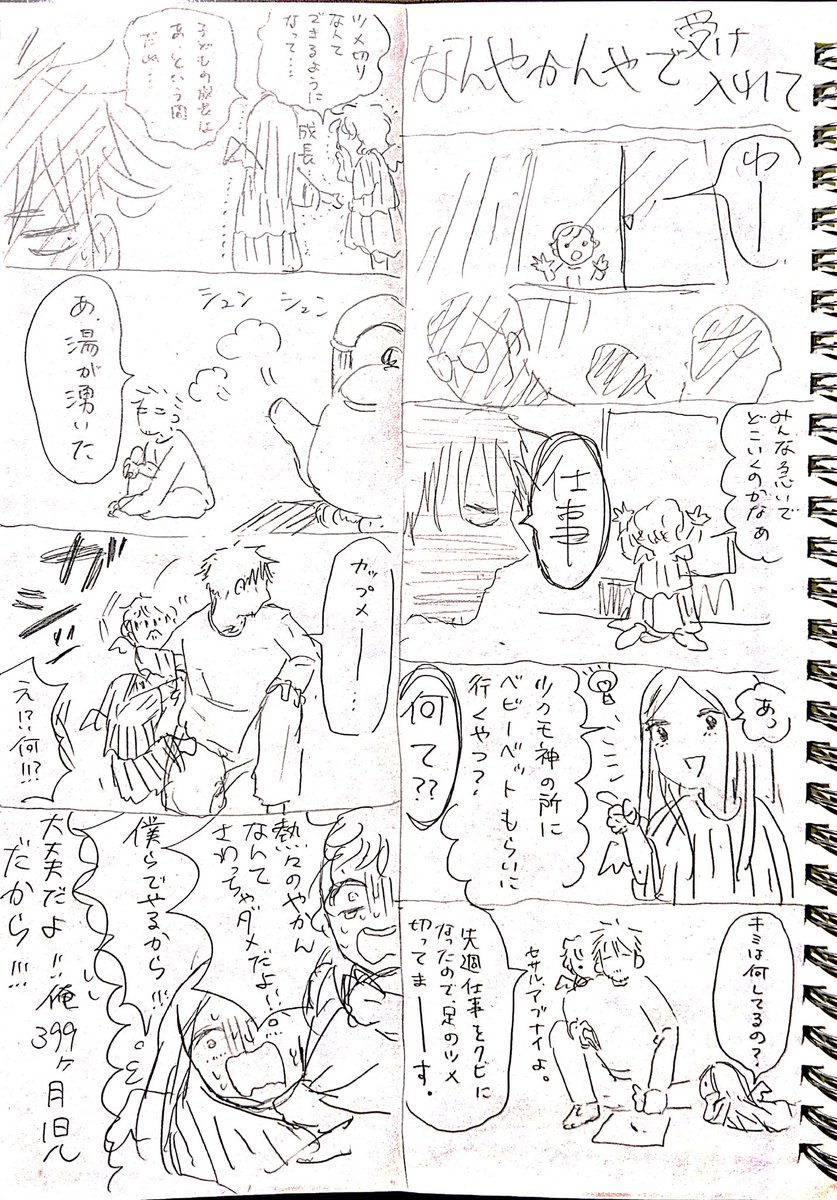 なんやかんやで
受け
入れて
わーー
みんな急いで
どこいくのかなぁ
仕事
あっ
ツクモ神の所に
ベビーベットもらいに
行くやつ?
何て??
キミは何してるの?
セサル、アブナイよ。
先週仕事をクビに
なったので、足のツメ
切ってまーーす。
ツメ切り
なんて
できるように
なって…
成長…
子どもの成長は
あっという間
だぬ…
シュン シュン
あ、湯が湧いた
カップメーー…
ガシッ
え!?何!!?
熱々のやかん
なんて
さわっちゃダメだよ!!
僕らでやるから!!!
大丈夫だよ!!俺
399ヶ月児
だから!!!